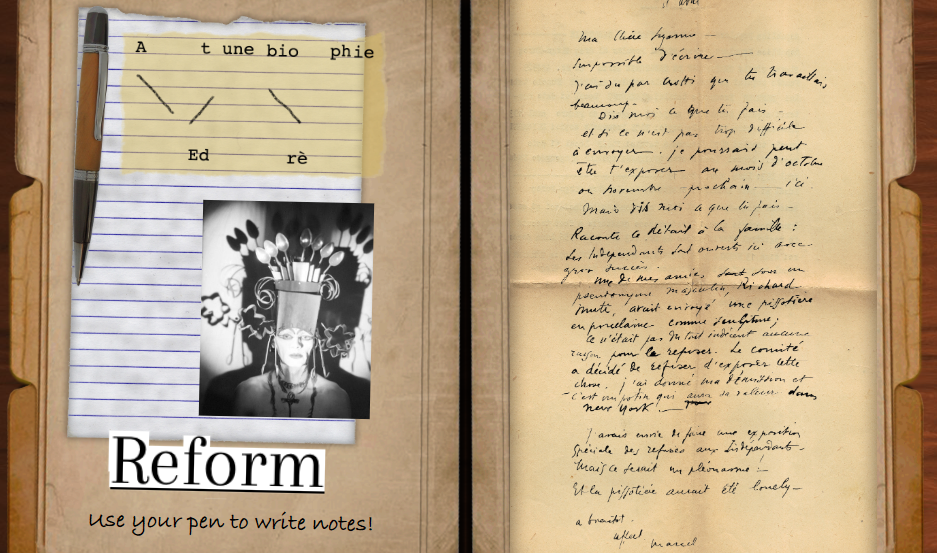 A t une bio phie
Ed rè
Reform
Use your pen to write notes!
11 avril
Ma chère Suzanne –
Impossible d'écrire –
J'ai su par Crotti que tu travaillais
beaucoup –
Dis moi ce que tu fais –
et si ce n'est pas trop difficile
à envoyer. je pourrais peut
être t'exposer au mois d'octobre
ou novembre prochain – ici
Mais dis moi ce que tu fais –
Raconte ce détail à la famille :
Les Indépendants sont ouverts ici avec
gros succès.
Une de mes amies sous un
pseudonyme masculin, Richard
Mutt, avait envoyé une pissotière
en porcelaine comme sculpture;
ce n'était pas du tout indécent aucune
raison pour la refuser. Le comité
a décidé de refuser d'exposer cette
chose. j'ai donné ma démission et
c'est un potin qui aura sa valeur dans
New York. –
J'avais envie de faire une exposition
spéciale des refusés aux Indépendants –
Mais ce serait un pléonasme –
Et la pissotière aurait été lonely –
a bientôt
affect.
Marcel